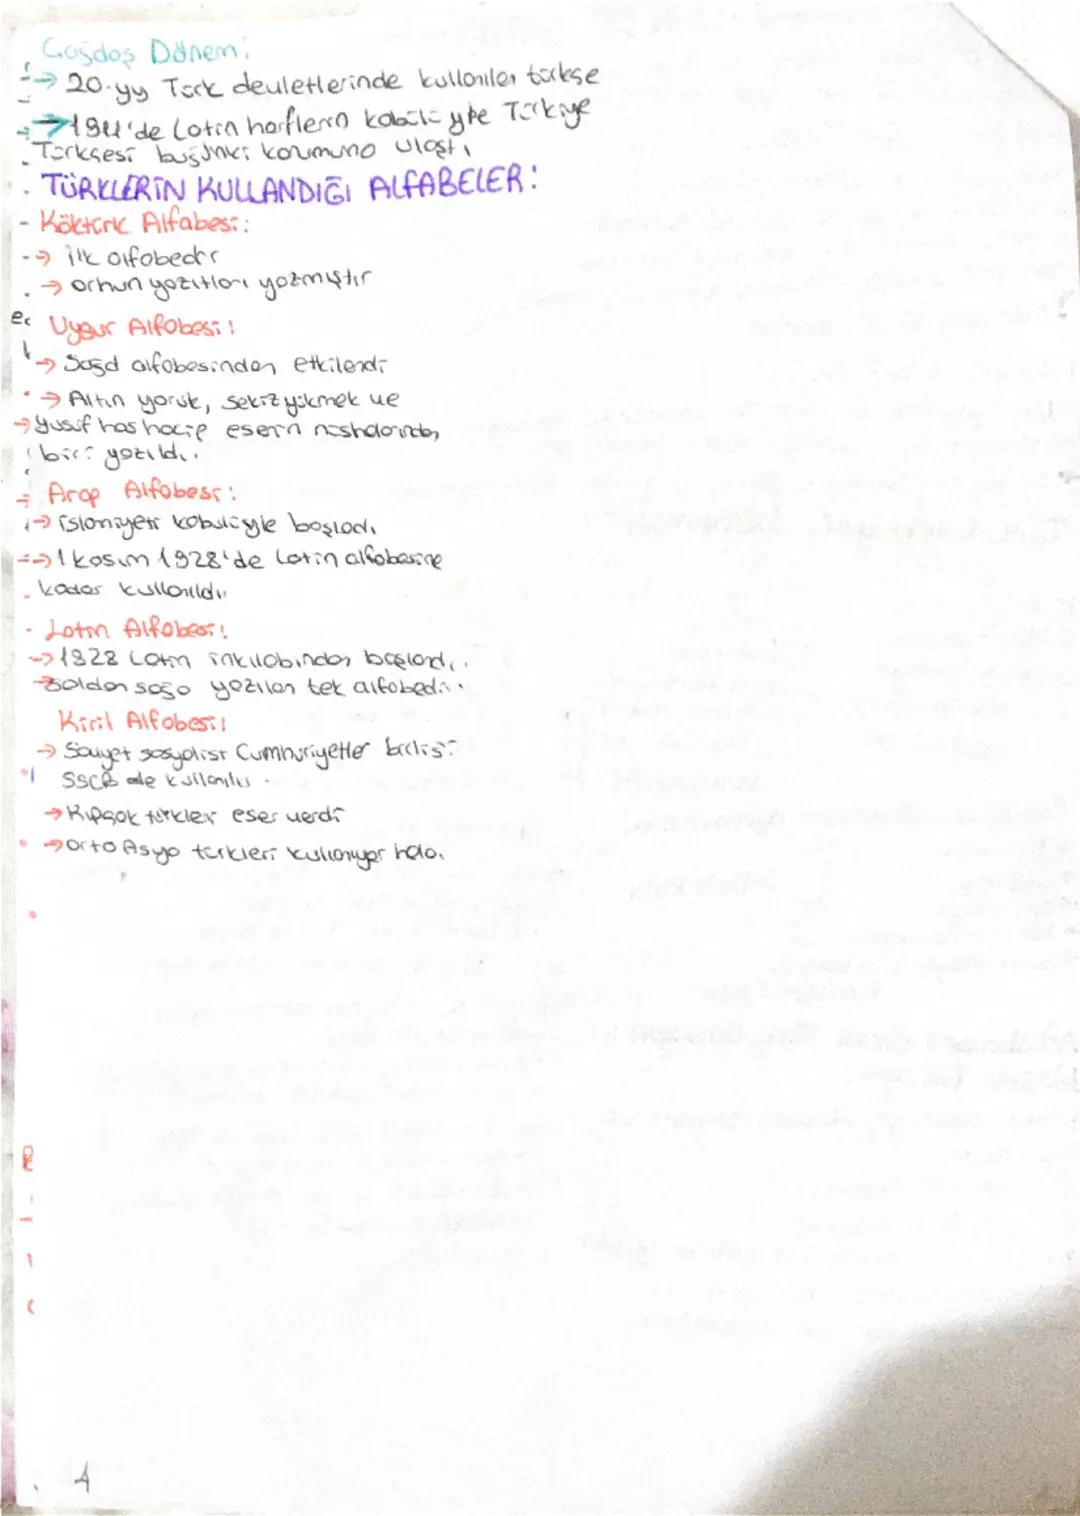 Çağdaş Dönem:
→ 20.yy Türk devletlerinde kullanılan türkçe
→ 1911'de Latin harflerin kabülü yle Türkiye
Türkçesi bugünkü konumuna ulaştı
TÜRKLERİN KULLANDIĞI ALFABELER:
- Köktürk Alfabesi:
→ ilk alfabedir
→ orhun yazıtları yazmıştır
Uygur Alfabesi!
→ Soğd alfabesinden etkilendi
→ Altın yaruk, sekiz yükmek ve
→ yusuf has hacip eserin nüshalarında,
biri yazıldı.
Arap Alfabesi:
→ islamiyeti kabulüyle başladı
→ 1 kasım 1928'de Latin alfabesine
kadar kullanıldı
- Latin Alfabesi!
→ 1928 Latin inkılabından başlandı.
soldan sağa yazılan tek alfabedir.
Kiril Alfabesi!
→ Sovyet sosyalist Cumhuriyetler birliği
SSCB de kullanılıs.
→ Kıpçak türkler eser verdi
→ Orta Asya türkleri kullanıyor hala.
4